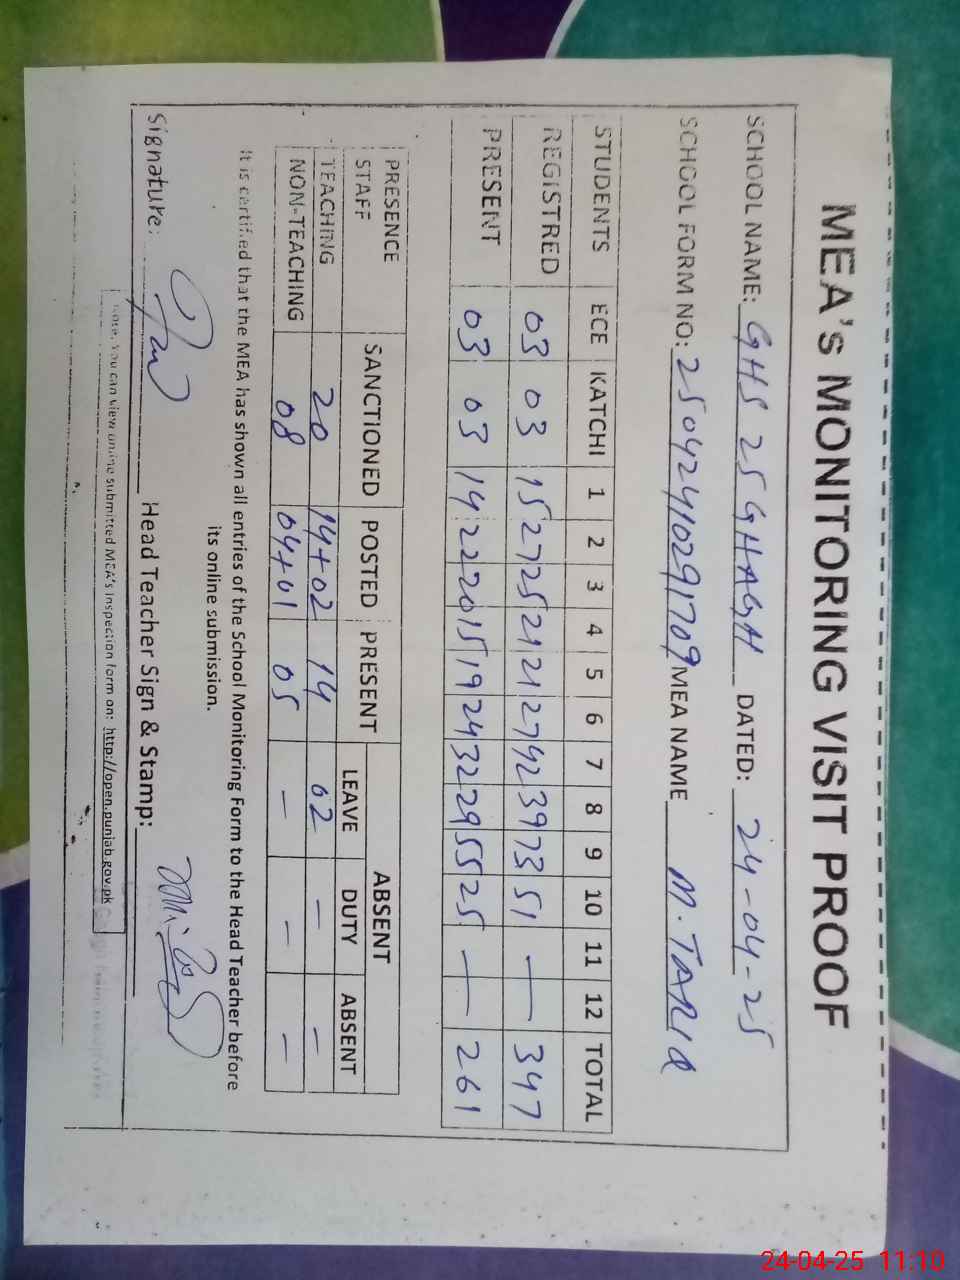 MEA's MONITORING VISIT PROOF
SCHOOL NAME: GHS 25 GHAGH DATED: 24-04-25
SCHOOL FORM NO: 25042410291709 MEA NAME M. TARIQ
STUDENTS ECE KATCHI 1 2 3 4 5 6 7 8 9 10 11 12 TOTAL
REGISTRED 03 03 15 27 25 21 21 27 42 39 73 51 — — 347
PRESENT 03 03 14 22 20 15 19 24 32 29 55 25 — — 261
PRESENCE STAFF SANCTIONED POSTED PRESENT ABSENT
LEAVE DUTY ABSENT
TEACHING 20 14+02 14 02 - -
NON-TEACHING 08 04+01 05 - - -
It is certified that the MEA has shown all entries of the School Monitoring Form to the Head Teacher before
its online submission.
Signature: Head Teacher Sign & Stamp:
Note. You can view online submitted MEA's inspection form on: http://open.punjab.gov.pk
24-04-25 11:10